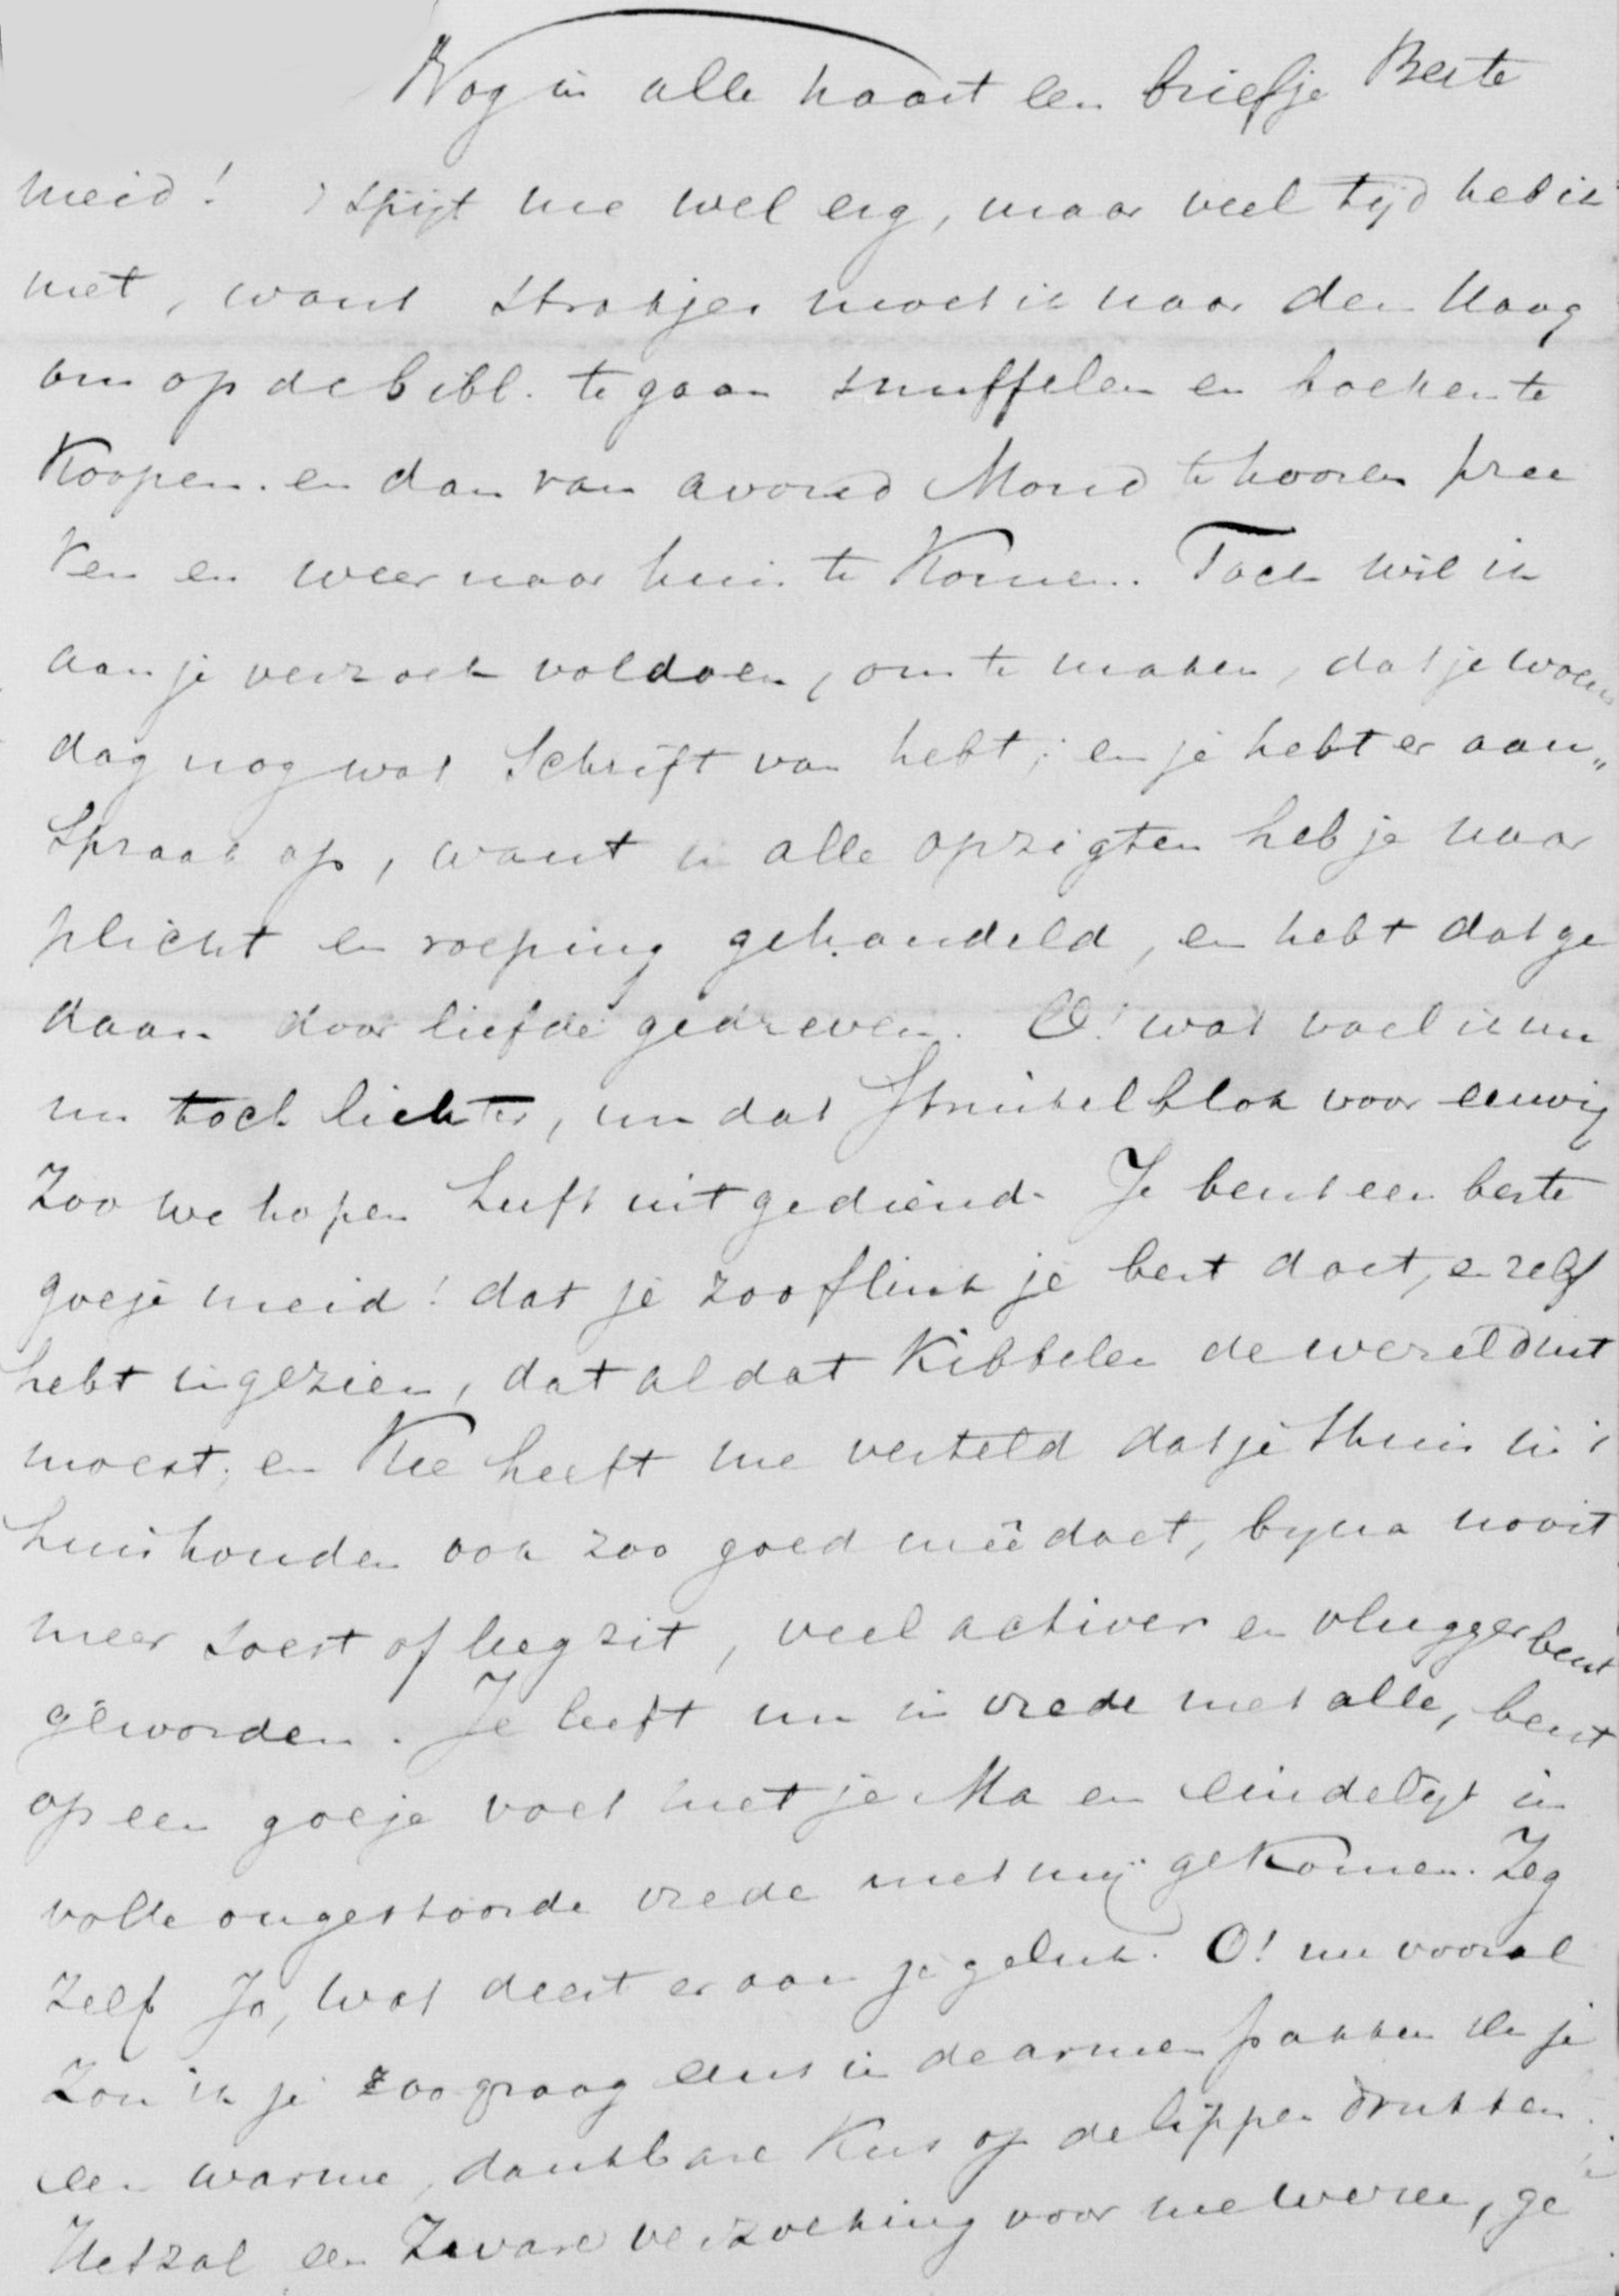 Nog in alle haast een briefje Beste
meid! 't spijt me wel erg, maar veel tijd heb ik
niet, want strakjes moet ik naar den Haag
om op de bibl. te gaan snuffelen en boeken te
Koopen. en dan van avond Mond te hooren pree
ken en weer naar huis te Komen. Toch wil ik
aan je verzoek voldoen, om te maken, dat je woens
dag nog wat Schrift van hebt; en je hebt er aan„
Spraak op, want in alle opzigten heb je naar
plicht en roeping gehandeld, en hebt dat ge
daan door liefde gedreven. O! wat voel ik me
nu toch lichter, nu dat Struikelblok voor eeuwig
Zoo we hopen heeft uitgediend. Je bent een beste
goeje meid! dat je zoo flink je best doet, en zelf
hebt ingezien, dat al dat Kibbelen de wereld uit
moest; en Kee heeft me verteld dat je thuis in 't
huishouden ook zoo goed meê doet, byna nooit
meer soest of leeg zit, veel activer en vlugger bent
geworden. Je leeft nu in vrede met alle, bent
op een goeje voet met je Ma en eindelyk in
volle ongestoorde vrede met mij gekomen. Zeg
Zelf Jo, wat deert er aan je geluk. O! nu vooral
Zou ik je zoo graag eens in de armen pakken en je
een warme, dankbare Kus op de lippen drukken.
Het zal een Zware verzoeking voor me wezen, ge